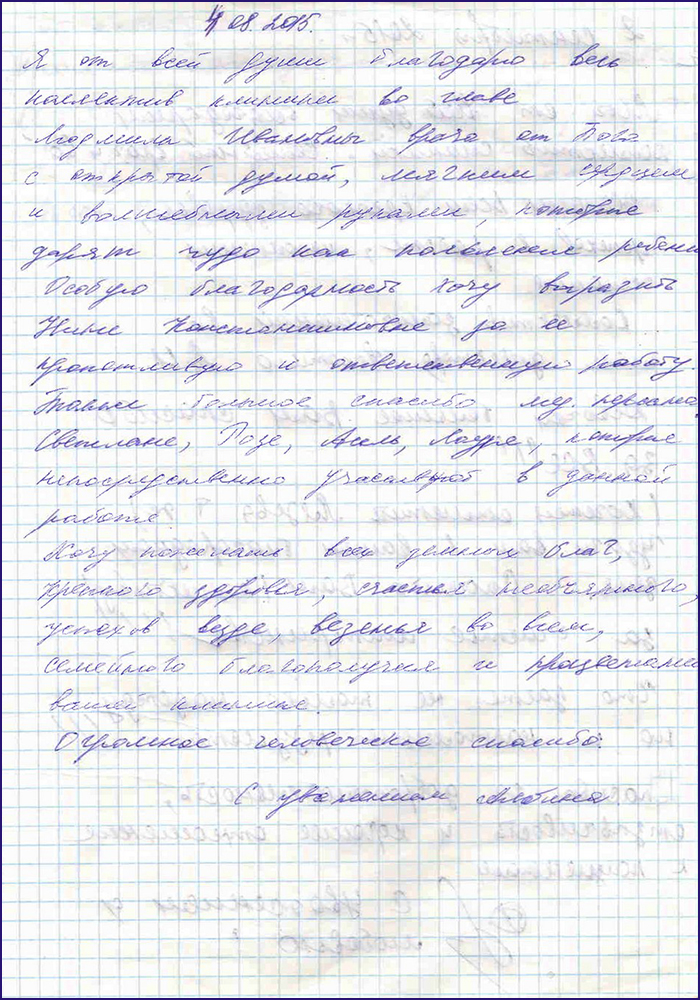 4 08. 2015.
Я от всей души благодарю весь
коллектив клиники во главе
Людмила Ивановны врача от Бога
с открытой душой, мягким сердцем
и волшебными руками, которые
дарят чудо как появление ребенк
Особую благодарность хочу выразить
Нине Константиновне за ее
кропотливую и ответственную работу.
Также большое спасибо мед. персонал
Светлане, Розе, Асель, Лауре, которые
непосредственно участвуют в данной
работе.
Хочу пожелать всех земных благ,
крепкого здоровья, счастья необъятного,
успехов везде, везенья во всем,
семейного благополучия и процветани
вашей клинике.
Огромное человеческое спасибо.
С уважением Альбина